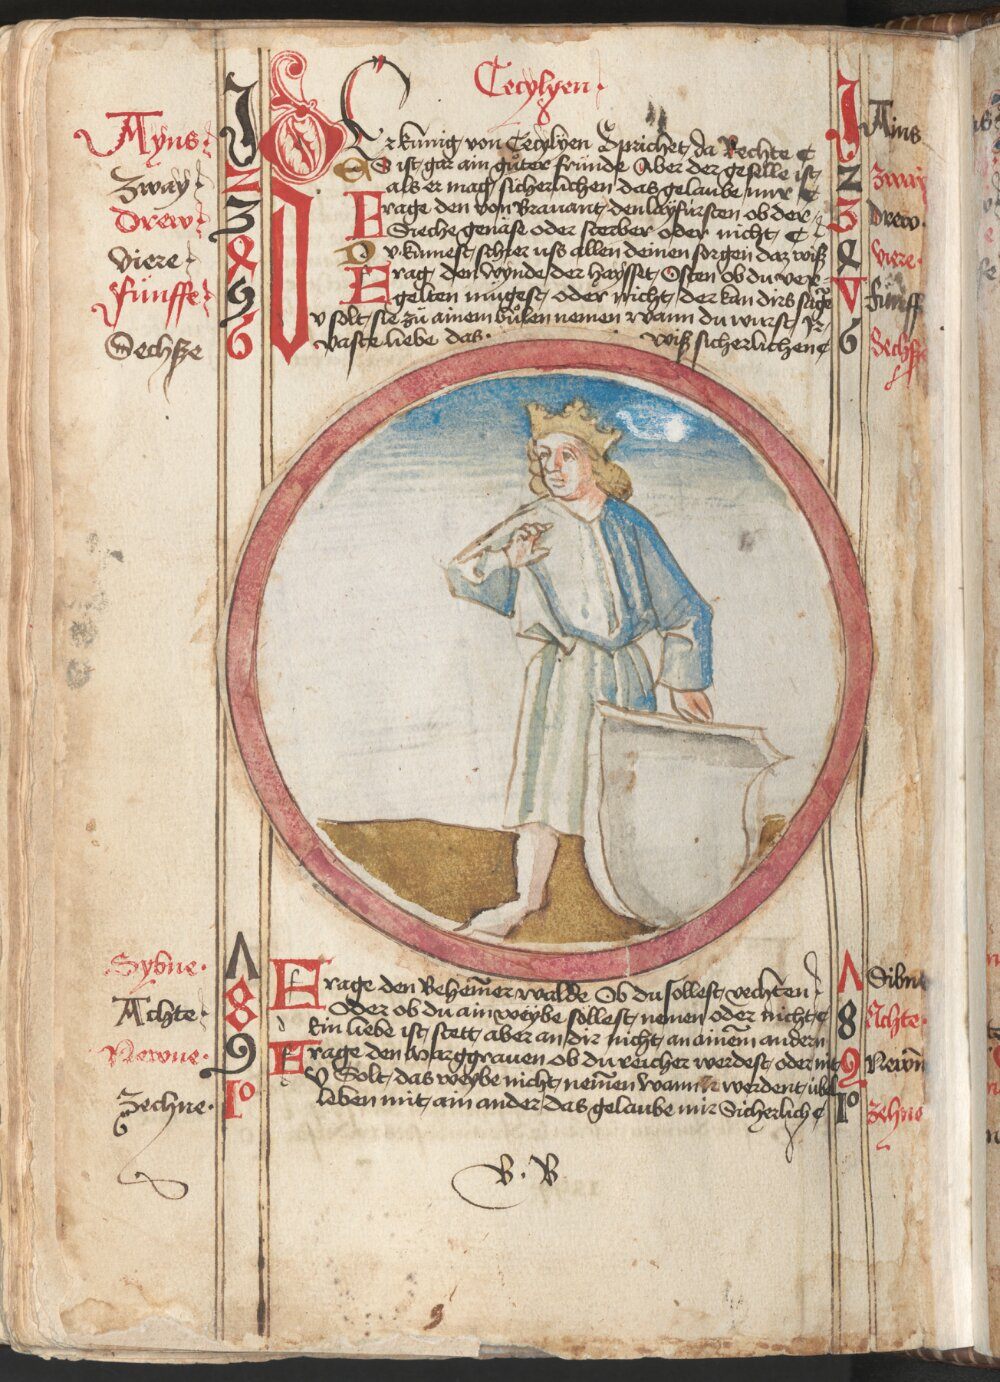 Cecylyen·
Er kunig von Cecylyen Sprichet da Rechte
Es ist gar ain guter frunde Aber der geselle ist
als er mag sicherlichen das gelaube mir
Frage den von Bravant den layfursten ob der
Sieche genäse oder sterber oder nicht
Du kumest schier uss allen deinen sorgen daz wiß
Frag den wynde der haysset Osten ob du ver
gelten mugest oder nicht der kan dirs sage
Du solt sie zu ainem bulen nemen wann du wurst Ir
vaste liebe das· wiß sicherlichen
Ayns· I I Ains
Zway 2 2 Zway
Drew 3 3 Drew·
Viere 4 4 Viere·
Fünffe 5 V Fünff
Sechsze 6 6 Sechsze
Sybne· 7 7 Sibne
Achte· 8 8 Achte·
Newne· 9 9 Newn
Zechne· 10 10 Zehne
Frage den Behemer walde Ob du sollest vechten
Oder ob du ain weybe sollest nemen oder nicht
Ein liebe ist stett aber an dir nicht an ainem andern
Frage den Marggraven ob du reicher werdest oder nit
Du Solt das weybe nicht nemen wann ir werdent übel
leben mit ain ander das gelaube mir Sicherlich
B · B